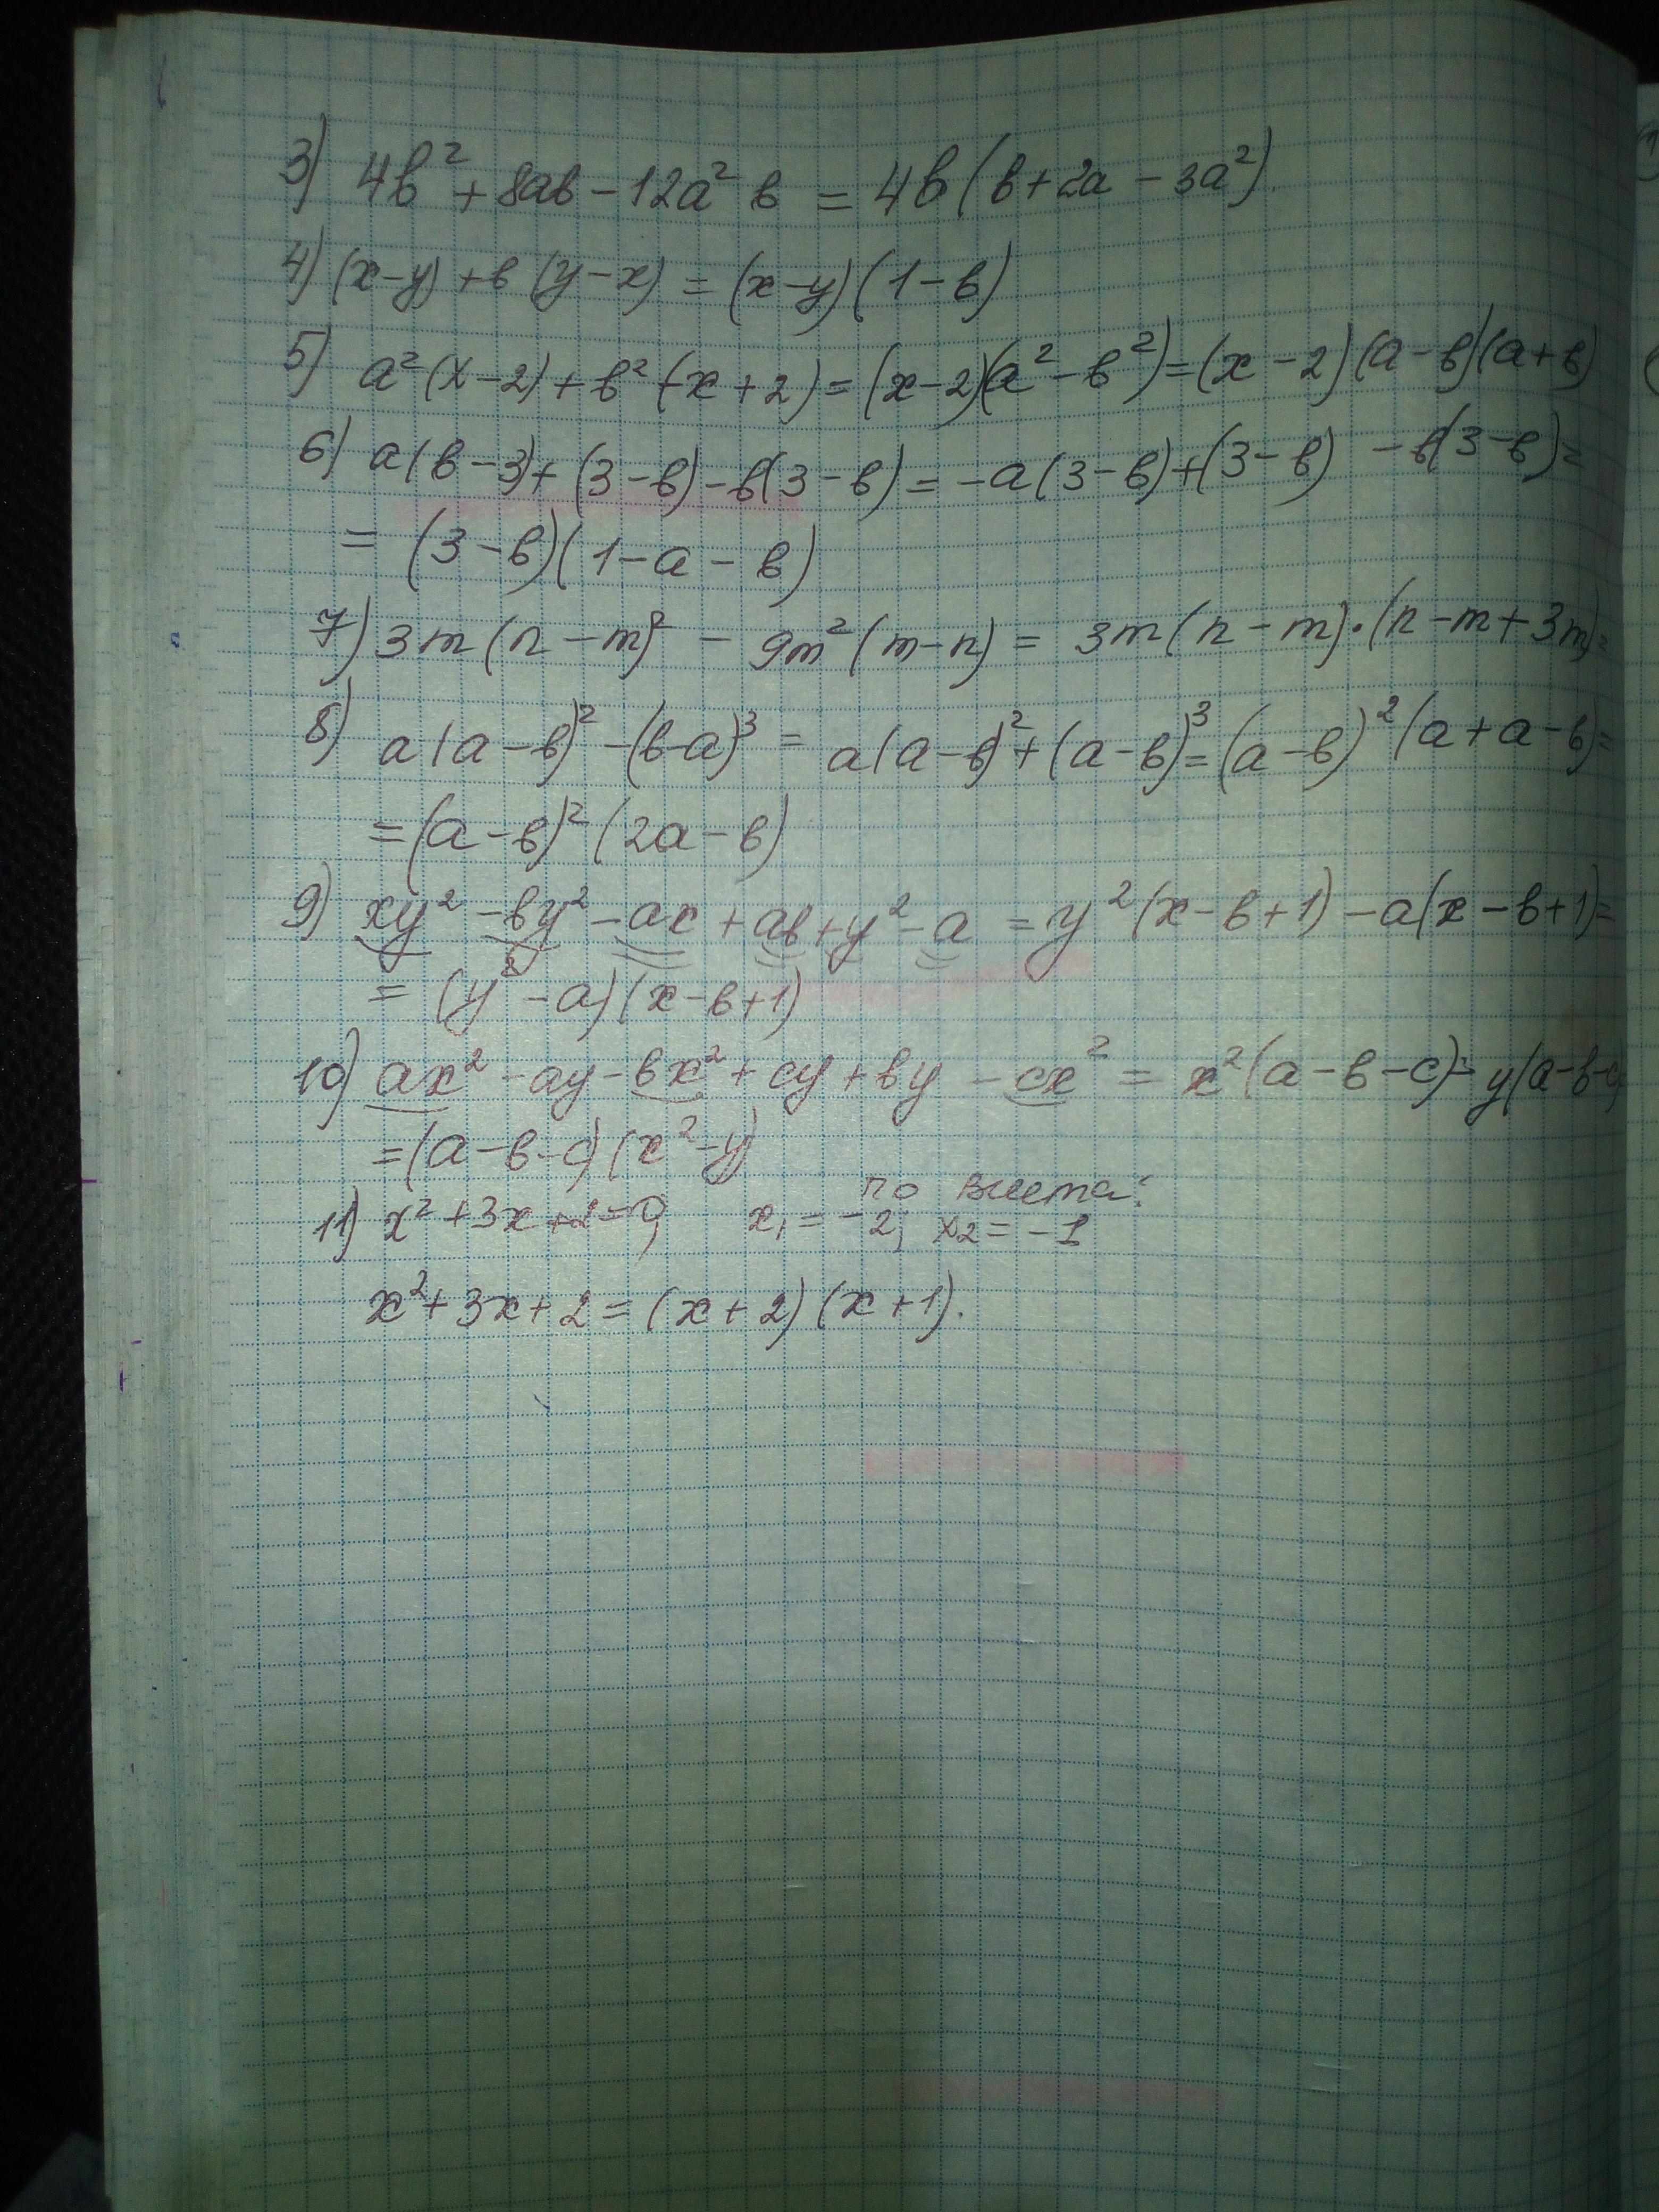 3) 4b² + 8ab - 12a² b = 4b (b + 2a - 3a²).
4) (x-y) + b (y-x) = (x-y) (1-b)
5) a² (x-2) + b² (-x+2) = (x-2)(a²-b²) = (x-2) (a-b)(a+b)
6) a(b-3)+(3-b)-b(3-b) = -a(3-b)+(3-b) -b(3-b) =
= (3-b)(1-a-b)
7) 3m(n-m)² - 9m²(m-n) = 3m(n-m)·(n-m+3m)=
8) a(a-b)² -(b-a)³ = a(a-b)²+(a-b)³ = (a-b)² (a+a-b)=
= (a-b)² (2a-b)
9) xy² - by² - ax + ab + y² - a = y² (x-b+1) - a(x-b+1)=
= (y² - a) (x-b+1)
10) ax² - ay - bx² + cy + by - cx² = x² (a-b-c) - y(a-b-c
= (a-b-c) (x²-y)
по Виета:
11) x² + 3x + 2 = 0, x₁ = -2; x₂ = -1
x² + 3x + 2 = (x+2) (x+1).